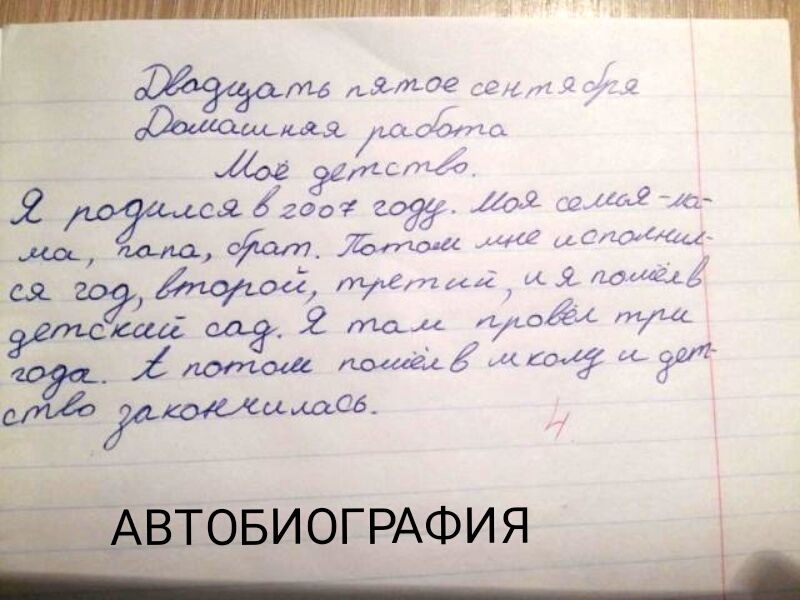 Двадцать пятое сентября
Домашняя работа
Моё детство.
Я родился в 2007 году. Моя семья - ма-
ма, папа, брат. Потом мне исполнил-
ся год, второй, третий, и я пошёл в
детский сад. Я там провёл три
года. А потом пошёл в школу и дет-
ство закончилась.
4
АВТОБИОГРАФИЯ